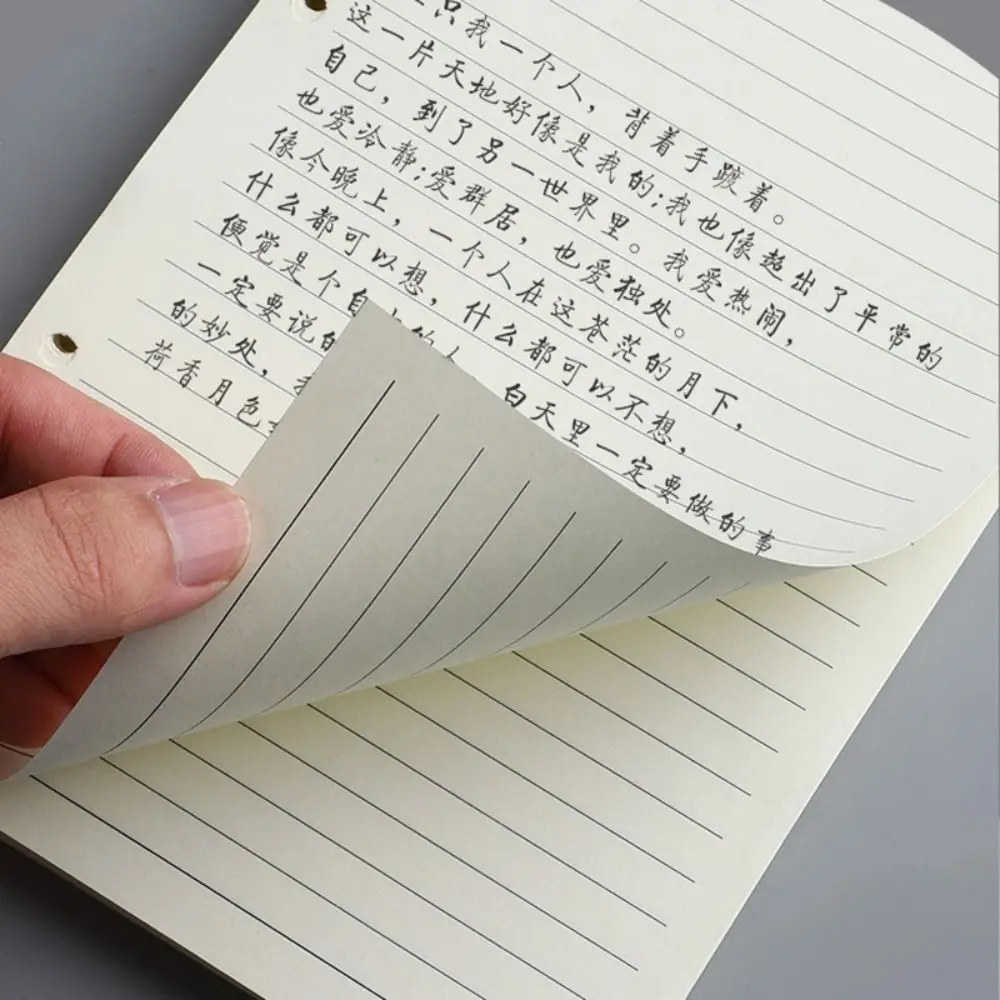 只我一个人，背着手踱着。
这一片天地好像是我的;我也像超出了平常的
自己，到了另一世界里。我爱热闹，
也爱冷静;爱群居，也爱独处。
像今晚上，一个人在这苍茫的月下，
什么都可以想，什么都可以不想，
便觉是个自 的 白天里一定要做的事
一定要说的
的妙处，
荷香月色